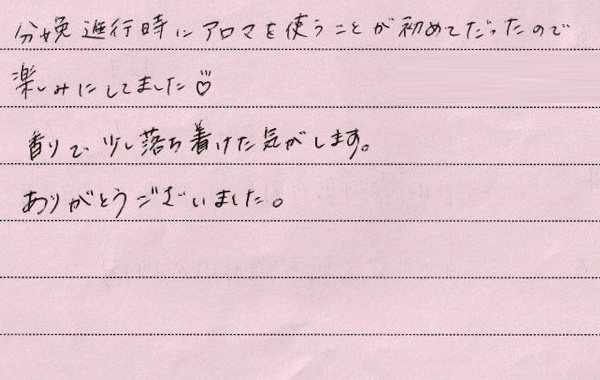 分娩進行時にアロマを使うことが初めてだったので
楽しみにしてました♡
香りで少し落ち着けた気がします。
ありがとうございました。